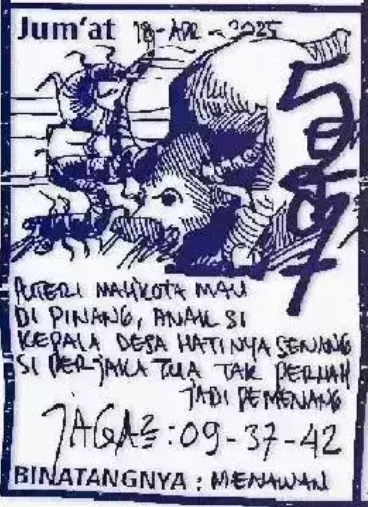 Jum'at 18-APR-2025
PUTERI MAHKOTA MAU
DI PINANG, ANAK SI
KEPALA DESA HATINYA SENANG
SI PERJAKA TUA TAK PERNAH
JADI PEMENANG
JAGA2 : 09-37-42
BINATANGNYA : MENAWAN